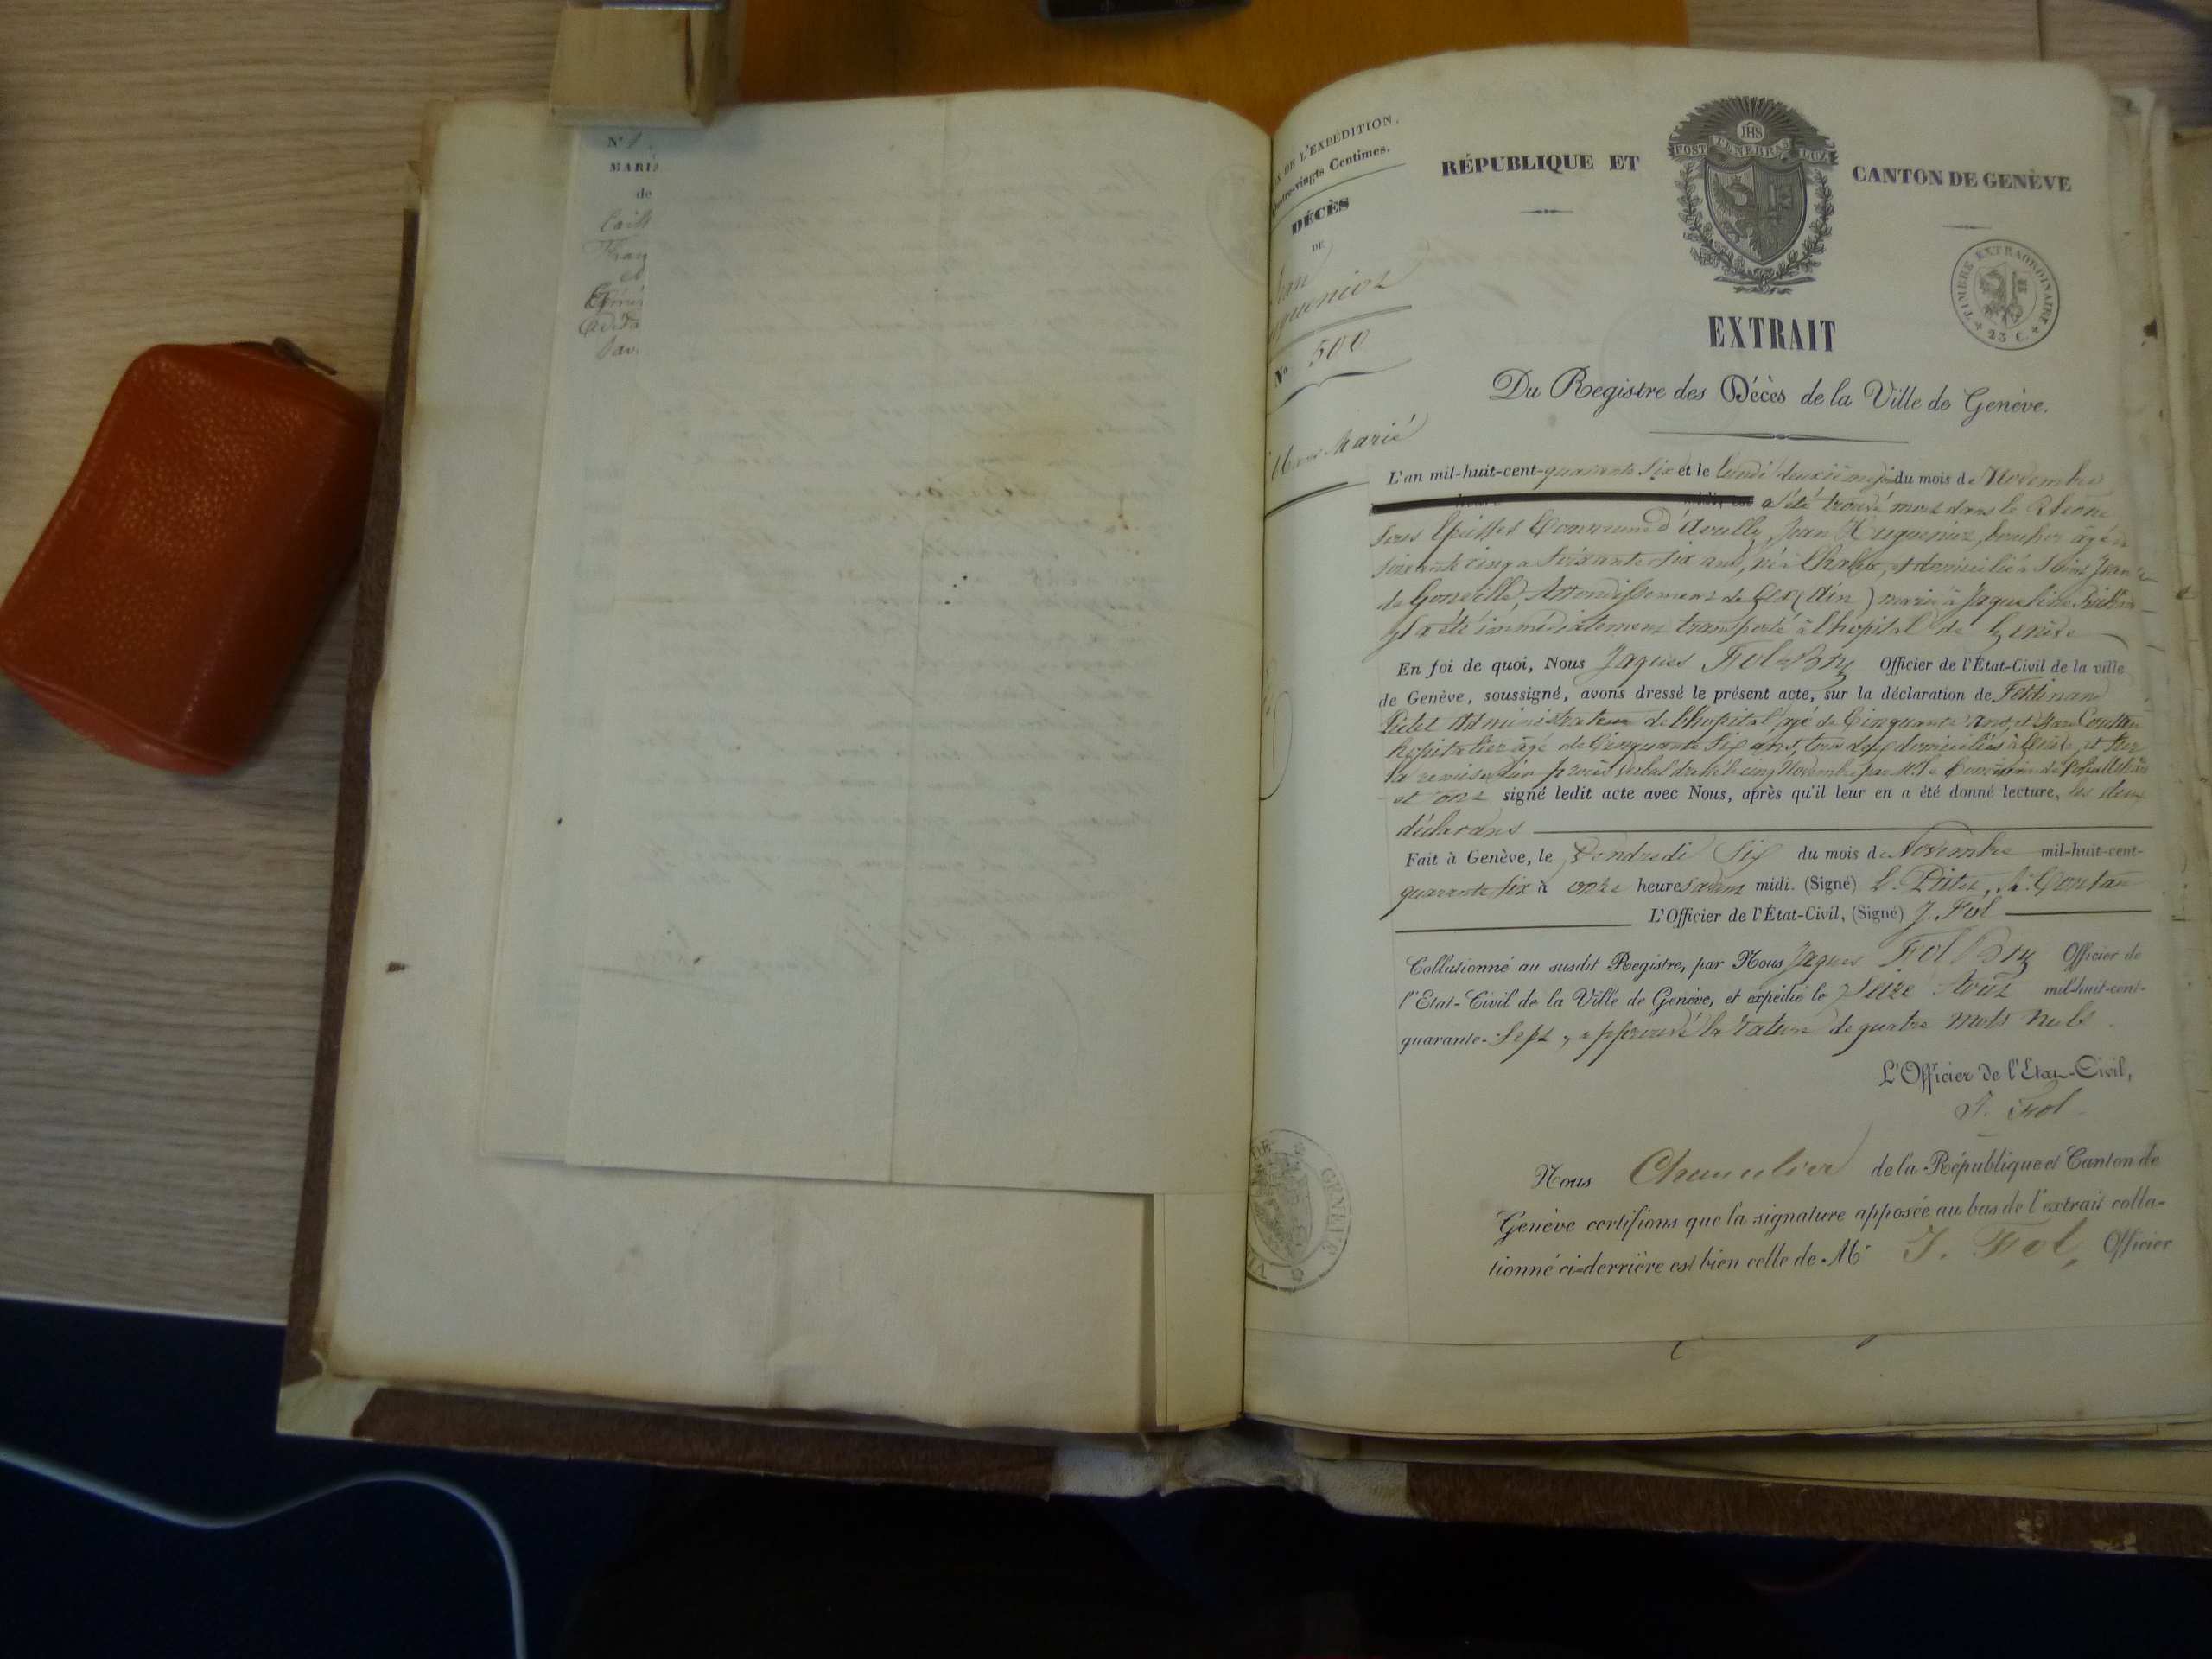 N° 1.
MARI
de
DE L'EXPÉDITION.
vingts Centimes.
DÉCÈS
DE
Jean
N° 500
Marié
RÉPUBLIQUE ET
CANTON DE GENÈVE
IHS
POST TENEBRAS LUX
TIMBRE EXTRAORDINAIRE
25 C.
EXTRAIT
Du Registre des Décès de la Ville de Genève.
L'an mil-huit-cent-quarante six et le lundi deuxième du mois de Novembre
a été trouvé mort dans le Rhone
sous Commune d'Avully, Jean Huguenioz, âgé de
soixante cinq a soixante six ans, né à et domicilié à Saint Jean
de Goneille, Arrondissement de Gex (Ain) marié à Jaqueline
il a été immédiatement transporté à l'hopital de Genève
En foi de quoi, Nous Jaques Fol Bry Officier de l'État-Civil de la ville
de Genève, soussigné, avons dressé le présent acte, sur la déclaration de Ferdinand
Pictet Administrateur de l'hopital, âgé de Cinquante Ans, et Marc Coutau
hopitalier âgé de Cinquante six ans, tous deux domiciliés à Genève, et sur
la remise d'un procès verbal du cinq Novembre par Mr le
et ont signé ledit acte avec Nous, après qu'il leur en a été donné lecture, les deux
déclarans
Fait à Genève, le Vendredi Six du mois de Novembre mil-huit-cent-
quarante six à onze heures avant midi. (Signé) Pictet, M. Coutau
L'Officier de l'État-Civil, (Signé) J. Fol
Collationné au susdit Registre, par Nous Jaques Fol Bry Officier de
l'Etat-Civil de la Ville de Genève, et expédié le Seize Août mil-huit-cent-
quarante-Sept, approuvé la rature de quatre mots nuls.
L'Officier de l'Etat-Civil,
J. Fol
Nous Chancelier de la République et Canton de
Genève certifions que la signature apposée au bas de l'extrait colla-
tionné ci-derrière est bien celle de Mr J. Fol, Officier
DE GENÈVE